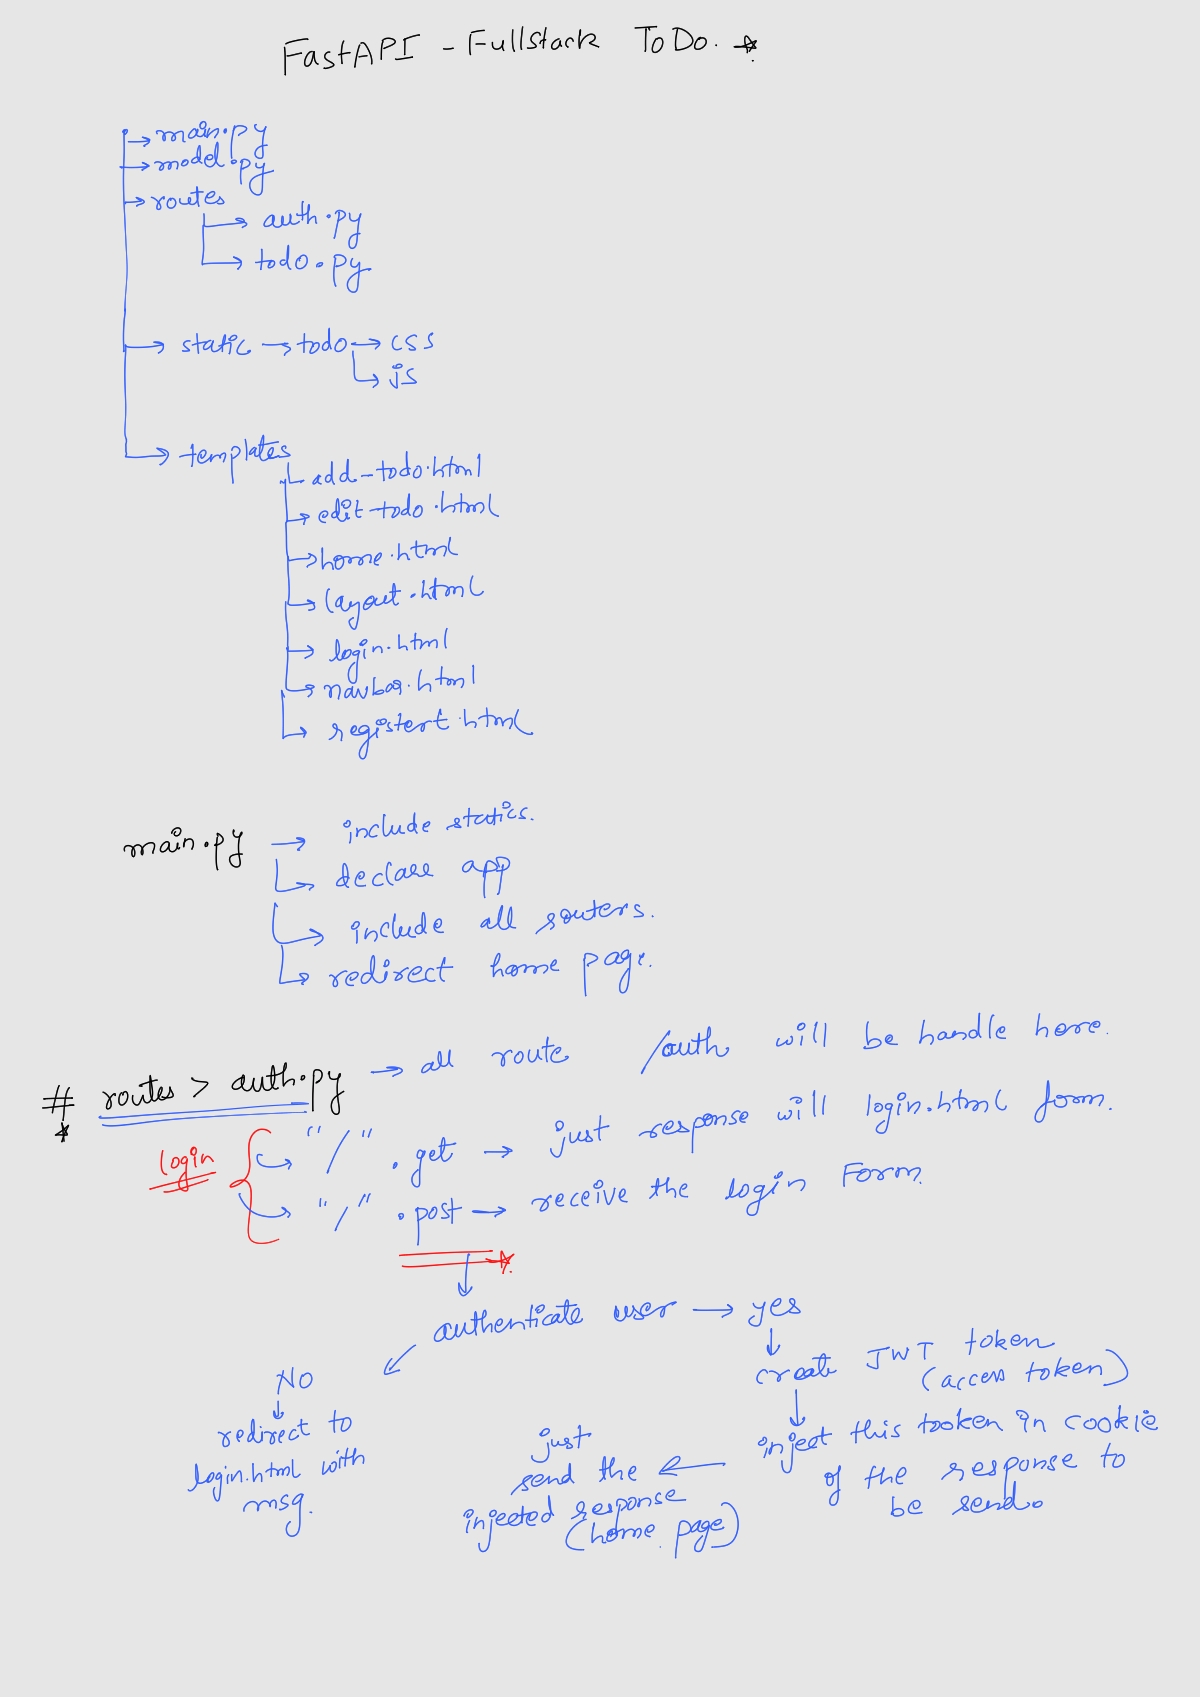 FastAPI - Fullstack ToDo.
main.py
model.py
routes
auth.py
todo.py
static → todo → css
js
templates
add-todo.html
edit-todo.html
home.html
layout.html
login.html
navbar.html
registert.html
main.py → include statics.
declare app
include all routers.
redirect home page.
# routes > auth.py → all route /auth will be handle here.
login
"/" .get → just response will login.html form.
"/" .post → receive the login Form.
authenticate user → yes
No
create JWT token
(access token)
redirect to
login.html with
msg.
inject this tooken in cookie
of the response to
be send.
just
send the
injected response
(home page)